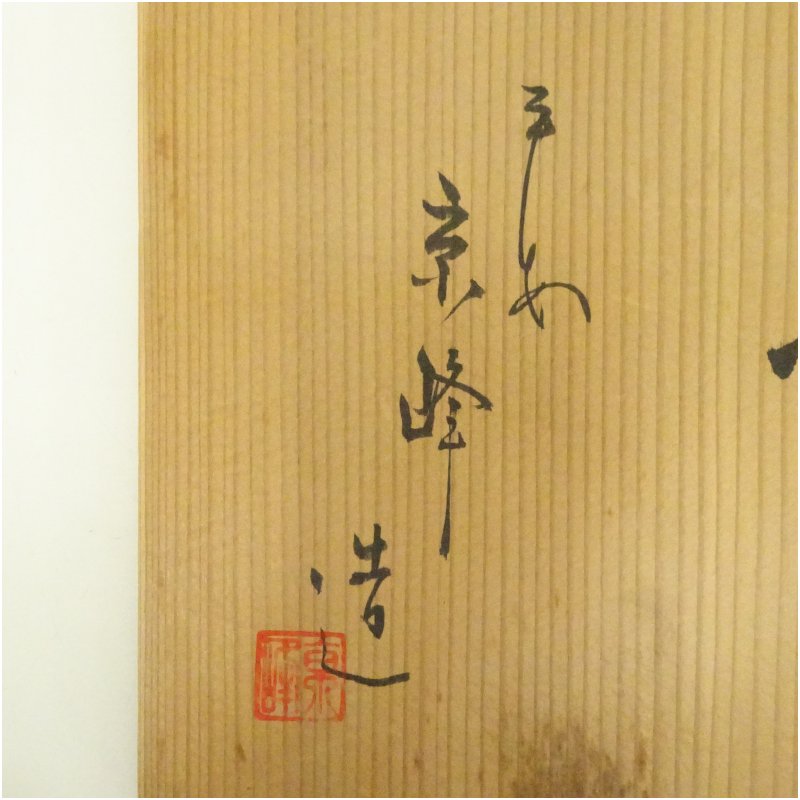 平安
京峰
造